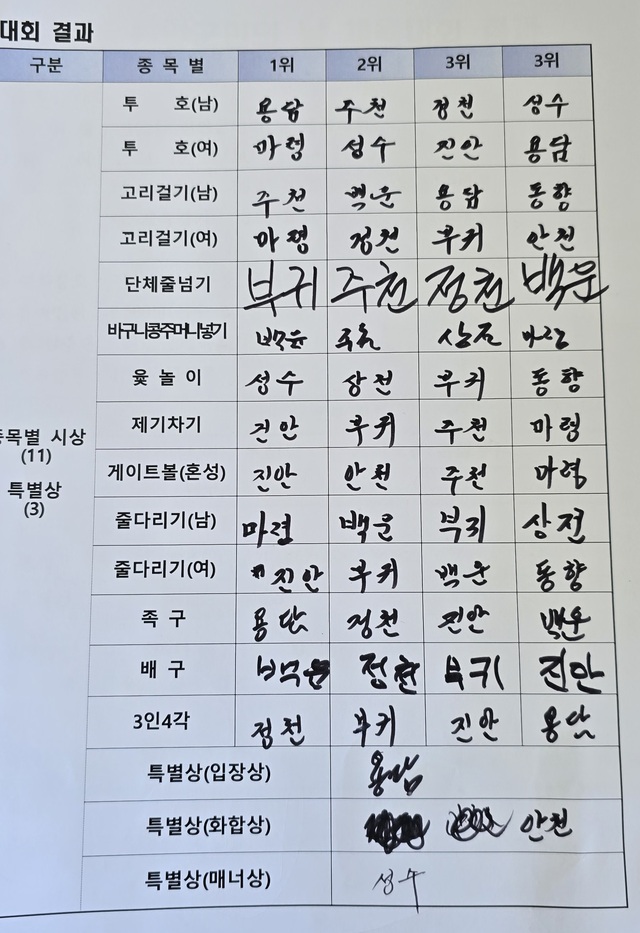 대회 결과
구분 종목별 1위 2위 3위 3위
투 호(남) 용담 주천 정천 성수
투 호(여) 마령 성수 진안 용담
고리걸기(남) 주천 백운 용담 동향
고리걸기(여) 마령 정천 부귀 안천
단체줄넘기 부귀 주천 정천 백운
바구니콩주머니넣기 백운 주천 상전 마령
윷놀이 성수 상전 부귀 동향
제기차기 진안 부귀 주천 마령
종목별 시상
(11)
게이트볼(혼성) 진안 안천 주천 마령
특별상
(3)
줄다리기(남) 마령 백운 부귀 상전
줄다리기(여) 진안 부귀 백운 동향
족구 용담 정천 진안 백운
배구 백운 정천 부귀 진안
3인4각 정천 부귀 진안 용담
특별상(입장상) 용담
특별상(화합상) 안천
특별상(매너상) 성수